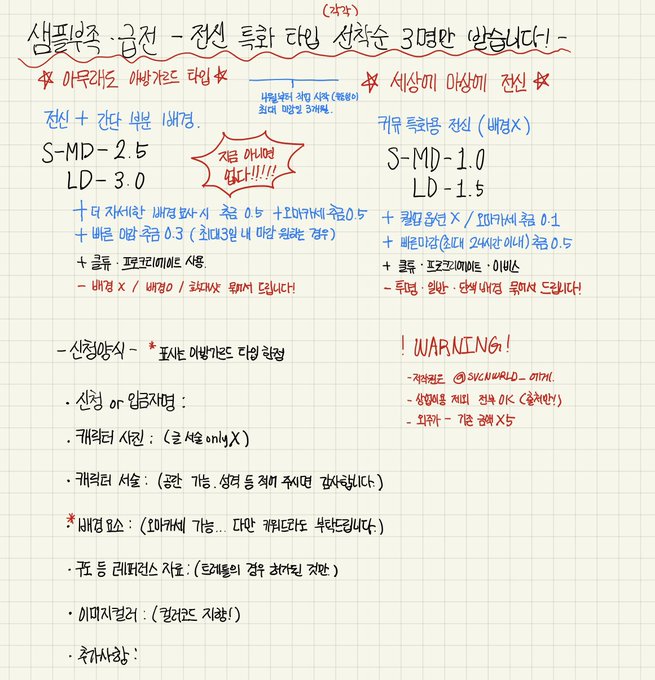 (각각)
샘플부족·급전 - 전신 특화 타입 선착순 3명만 받습니다! -
☆ 아무래도 아방가르드 타입 ☆
4월부터 작업 시작
최대 마감일 3개월.
전신 + 간단 부분 배경.
S-MD-2.5
LD-3.0
지금 아니면
없다!!!!!
+ 더 자세한 배경 묘사 시 추금 0.5 +오마카세 추금 0.5
+ 빠른 마감 추금 0.3 (최대 3일 내 마감 원하는 경우)
+ 클튜·프로크리에이트 사용.
- 배경X / 배경O / 확대샷 묶어서 드립니다!
☆ 세상에 마상에 전신 ☆
커뮤 특화용 전신 (배경X)
S-MD-1.0
LD-1.5
+ 퀄업 옵션 X / 오마카세 추금 0.1
+ 빠른마감(최대 24시간 이내) 추금 0.5
+ 클튜·프로크리에이트·이비스
- 투명·일반·단색 배경 묶어서 드립니다!
- 신청양식 - * 표시는 아방가르드 타입 한정
· 신청 or 입금자명 :
· 캐릭터 사진 : (글 서술 only X)
· 캐릭터 서술 : (공란 가능. 성격 등 적어 주시면 감사합니다.)
* · 배경요소 : (오마카세 가능... 다만 키워드라도 부탁드립니다.)
· 구도 등 레퍼런스 자료 : (트레틀의 경우 허가된 것만.)
· 이미지컬러 : (컬러코드 지향!)
· 추가사항 :
! WARNING !
- 저작권은 @SVCNWRLD_에게.
- 상업이용 제외 전부 OK (출처만!)
- 외주가 - 기존 금액 X5